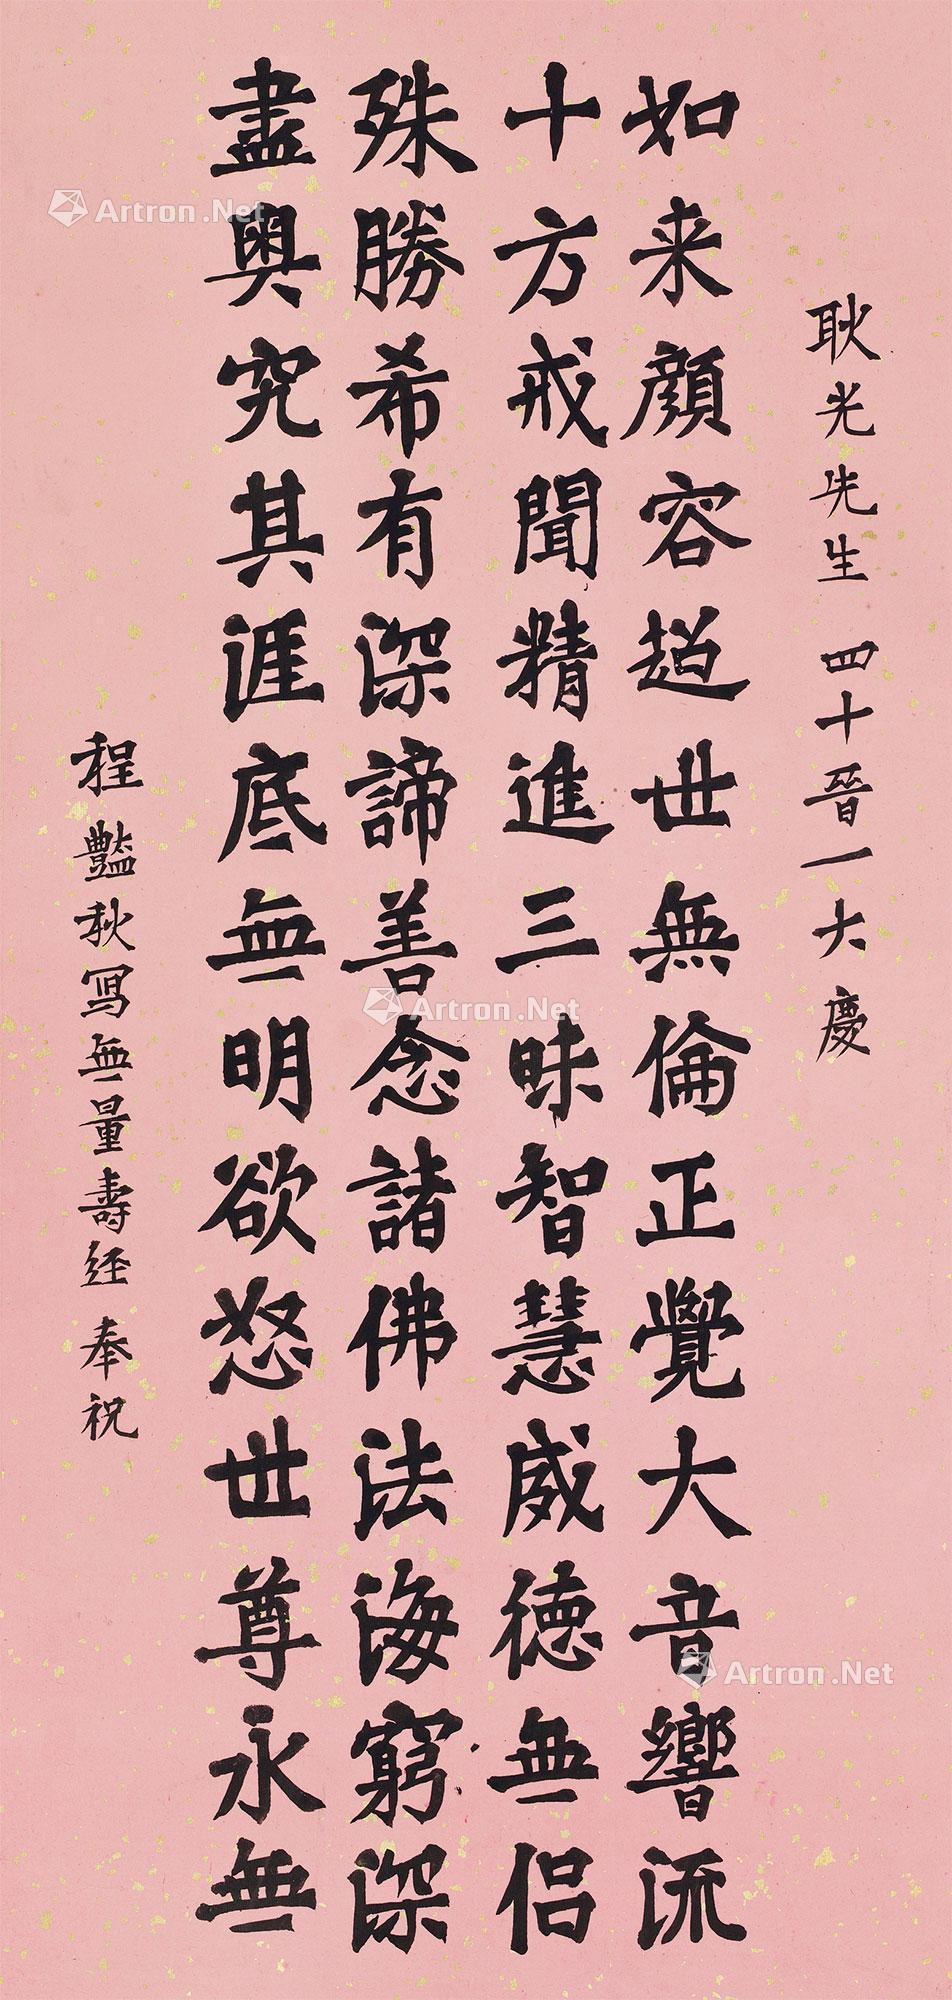 耿光先生 四十晉一大慶
如来顔容超世無倫正覺大音響流
十方戒聞精進三昧智慧威德無侣
殊勝希有深諦善念諸佛法海窮深
盡奥究其涯底無明欲怒世尊永無
程豔秋寫無量壽經奉祝
Artron.Net
Artron.Net
Artron.Net